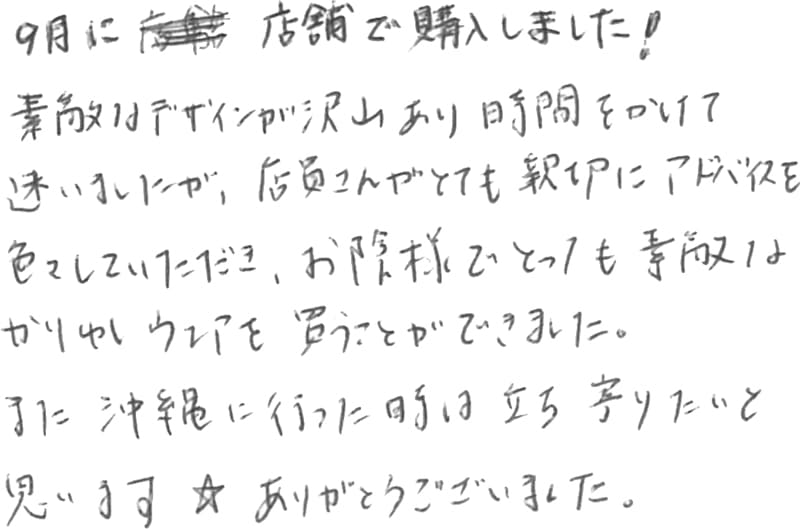 9月に 店舗で購入しました!
素敵なデザインが沢山あり時間をかけて
迷いましたが、店員さんがとても親切にアドバイスを
色々していただき、お陰様でとっても素敵な
かりゆしウェアを買うことができました。
また沖縄に行った時は立ち寄りたいと
思います☆ありがとうございました。